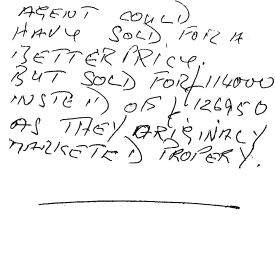 AGENT COULD
HAVE SOLD FOR A
BETTER PRICE.
BUT SOLD FOR £114000
INSTED OF £126950
AS THEY ORIGINACY
MARKETED PROPERY.